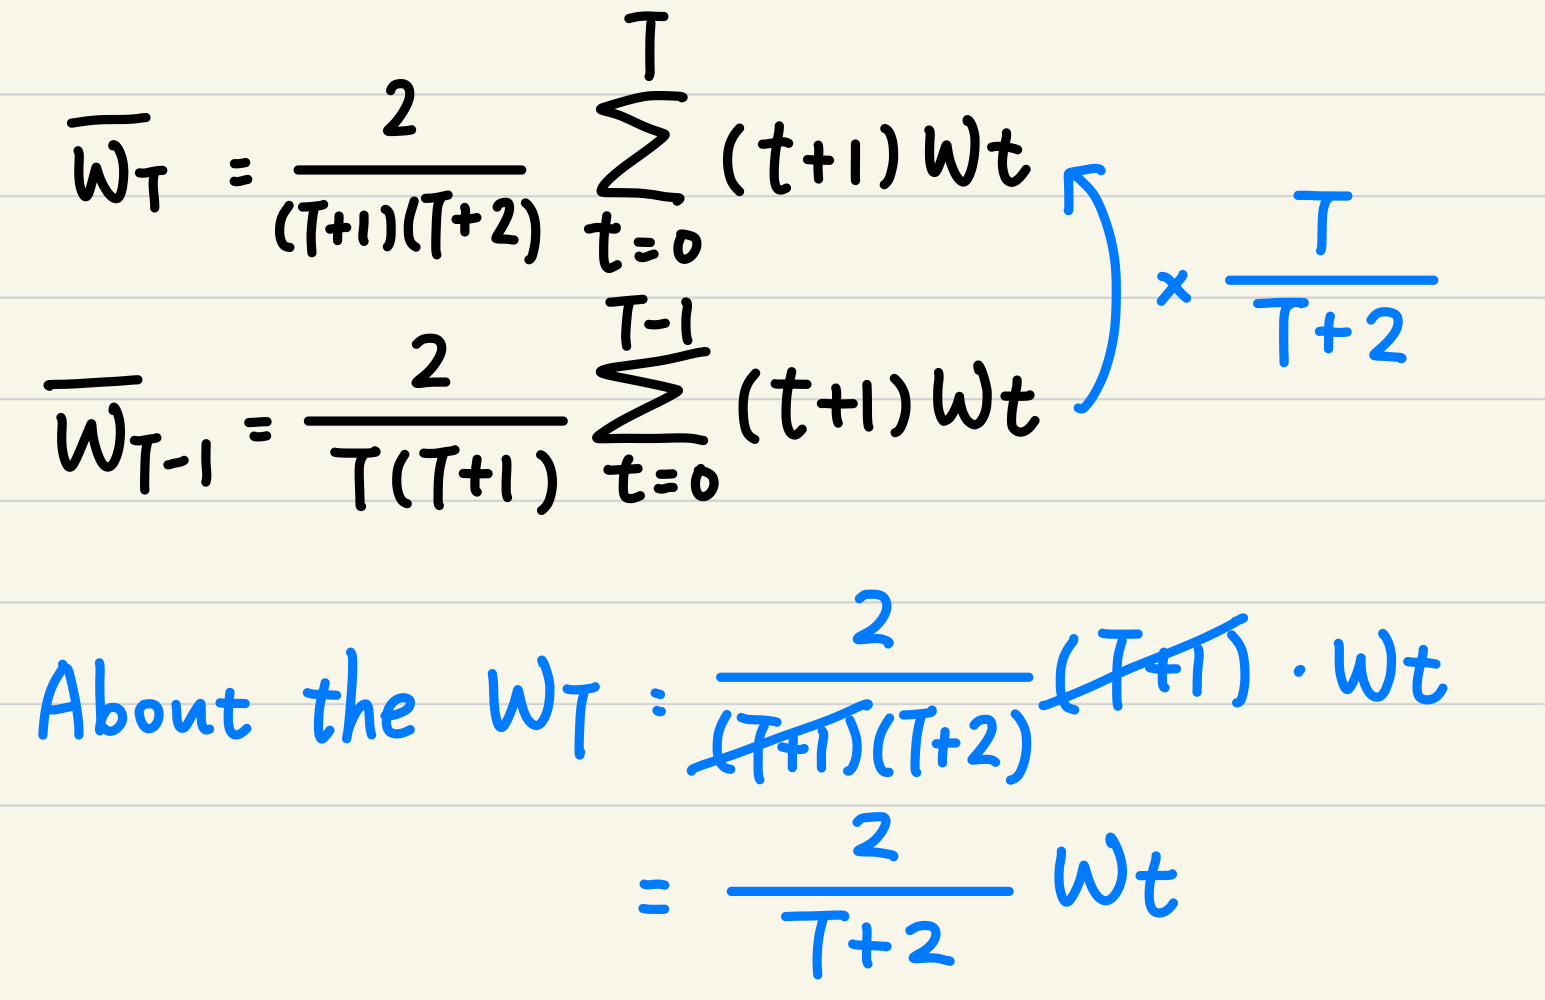 \overline{W_T} = \frac{2}{(T+1)(T+2)} \sum_{t=0}^{T} (t+1) W_t
\overline{W_{T-1}} = \frac{2}{T(T+1)} \sum_{t=0}^{T-1} (t+1) W_t
× \frac{T}{T+2}
About the W_T : \frac{2}{(T+1)(T+2)} (T+1) · W_t
= \frac{2}{T+2} W_t